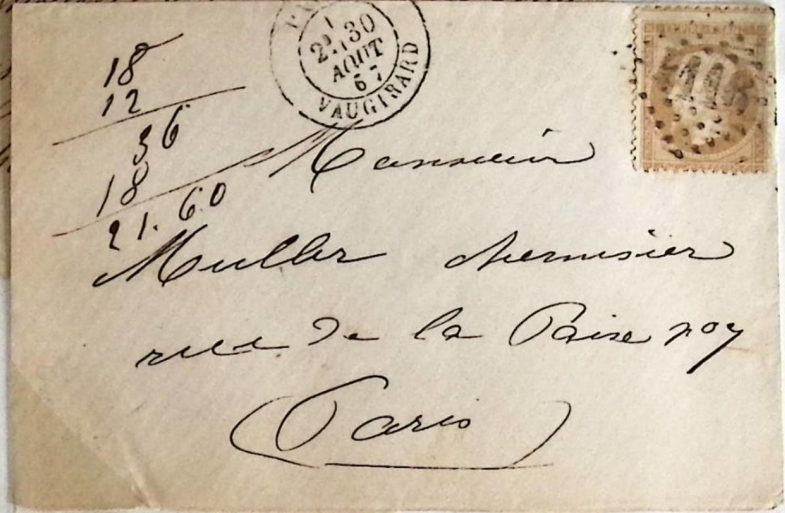 18
12
36
18
21.60
2E
30
AOUT
67
VAUGIRARD
Monsieur
Muller chemisier
rue de la Paix no 7
(Paris)